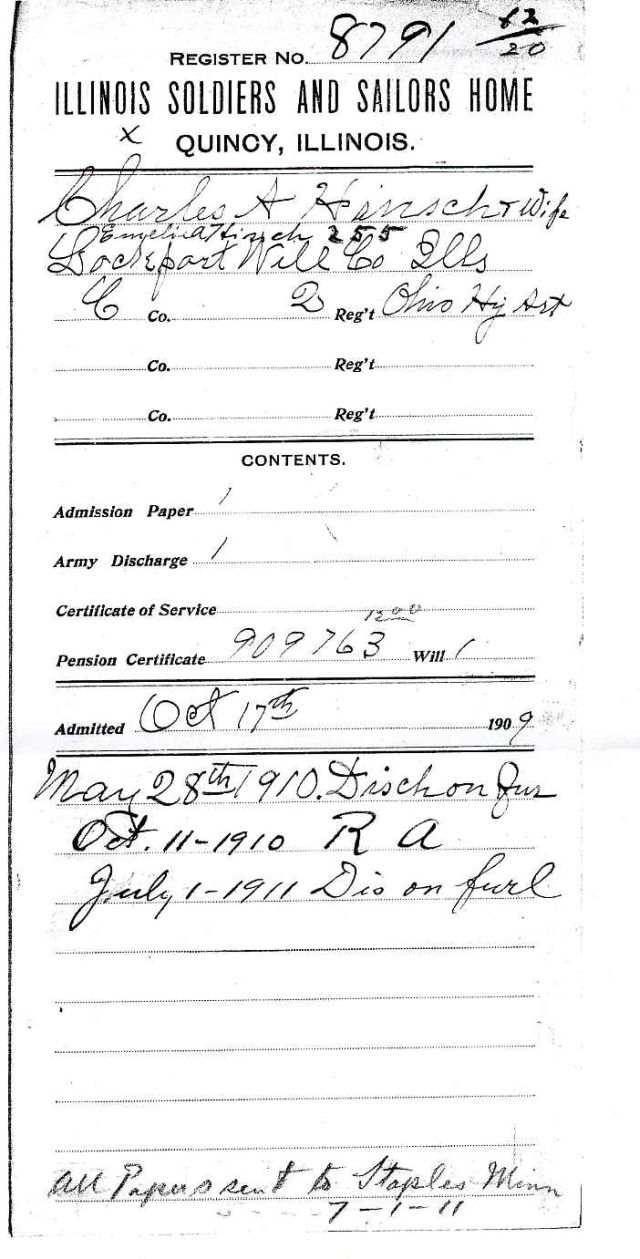 REGISTER NO. 8791 12/20
ILLINOIS SOLDIERS AND SAILORS HOME
x QUINCY, ILLINOIS.
Charles A Hinsch + Wife
Emelie A Hinsch 255
Lockport Will Co Ills
C Co. 2 Reg't Ohio Hy Art
Co. Reg't
Co. Reg't
CONTENTS.
Admission Paper 1
Army Discharge 1
Certificate of Service
12 00
Pension Certificate 909763 Will 1
Admitted Oct 17th 1909
May 28th 1910. Disch on fur
Oct. 11-1910 R A
July 1-1911 Dis on furl
All Papers sent to Staples Minn
7-1-11